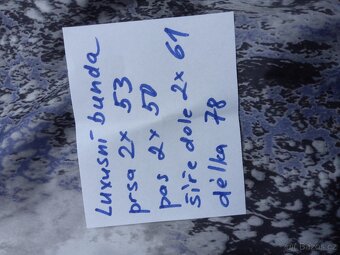 Luxusní bunda
prsa 2x 53
pas 2x 50
šíře dole 2x 61
délka 78